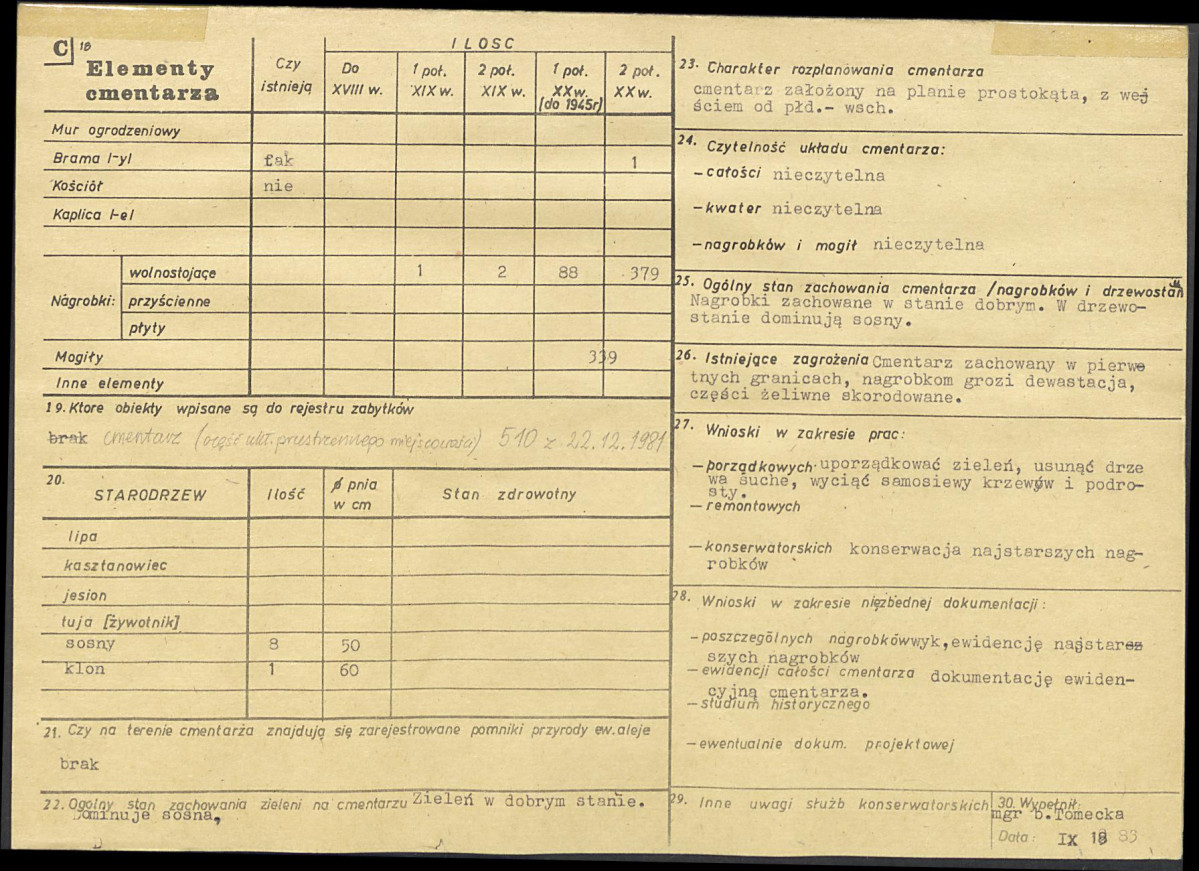 C 18
Elementy
cmentarza
Czy
istnieją
ILOSC
Do
XVIII w.
1 poł.
XIX w.
2 poł.
XIX w.
1 poł.
XX w.
(do 1945r)
2 poł.
XX w.
Mur ogrodzeniowy
Brama /-y/ tak 1
Kościół nie
Kaplica /-e/
Nagrobki: wolnostojące 1 2 88 379
przyścienne
płyty
Mogiły 339
Inne elementy
19. Ktore obiekty wpisane są do rejestru zabytków
brak cmentarz (część ukł. przestrzennego miejscowości) 510 z 22.12.1981
20. STARODRZEW Ilość ø pnia
w cm Stan zdrowotny
lipa
kasztanowiec
jesion
tuja [żywotnik]
sosny 8 50
klon 1 60
21. Czy na terenie cmentarza znajdują się zarejestrowane pomniki przyrody ew. aleje
brak
22. Ogolny stan zachowania zieleni na cmentarzu Zieleń w dobrym stanie.
Dominuje sosna,
23. Charakter rozplanowania cmentarza
cmentarz założony na planie prostokąta, z wej
ściem od płd.- wsch.
24. Czytelność układu cmentarza:
- całości nieczytelna
- kwater nieczytelna
- nagrobków i mogił nieczytelna
25. Ogólny stan zachowania cmentarza /nagrobków i drzewostan
Nagrobki zachowane w stanie dobrym. W drzewo-
stanie dominują sosny.
26. Istniejące zagrożenia Cmentarz zachowany w pierwo
tnych granicach, nagrobkom grozi dewastacja,
części żeliwne skorodowane.
27. Wnioski w zakresie prac:
- porządkowych uporządkować zieleń, usunąć drze
wa suche, wyciąć samosiewy krzewów i podro-
sty.
- remontowych
- konserwatorskich konserwacja najstarszych nag-
robków
28. Wnioski w zakresie niezbednej dokumentacji:
- poszczególnych nagrobków wyk, ewidencję najstarsz
szych nagrobków
- ewidencji całości cmentarza dokumentację ewiden-
cyjną cmentarza.
- studium historycznego
- ewentualnie dokum. projektowej
29. Inne uwagi służb konserwatorskich
30. Wypełnił:
mgr B. Tomecka
Data: IX 83